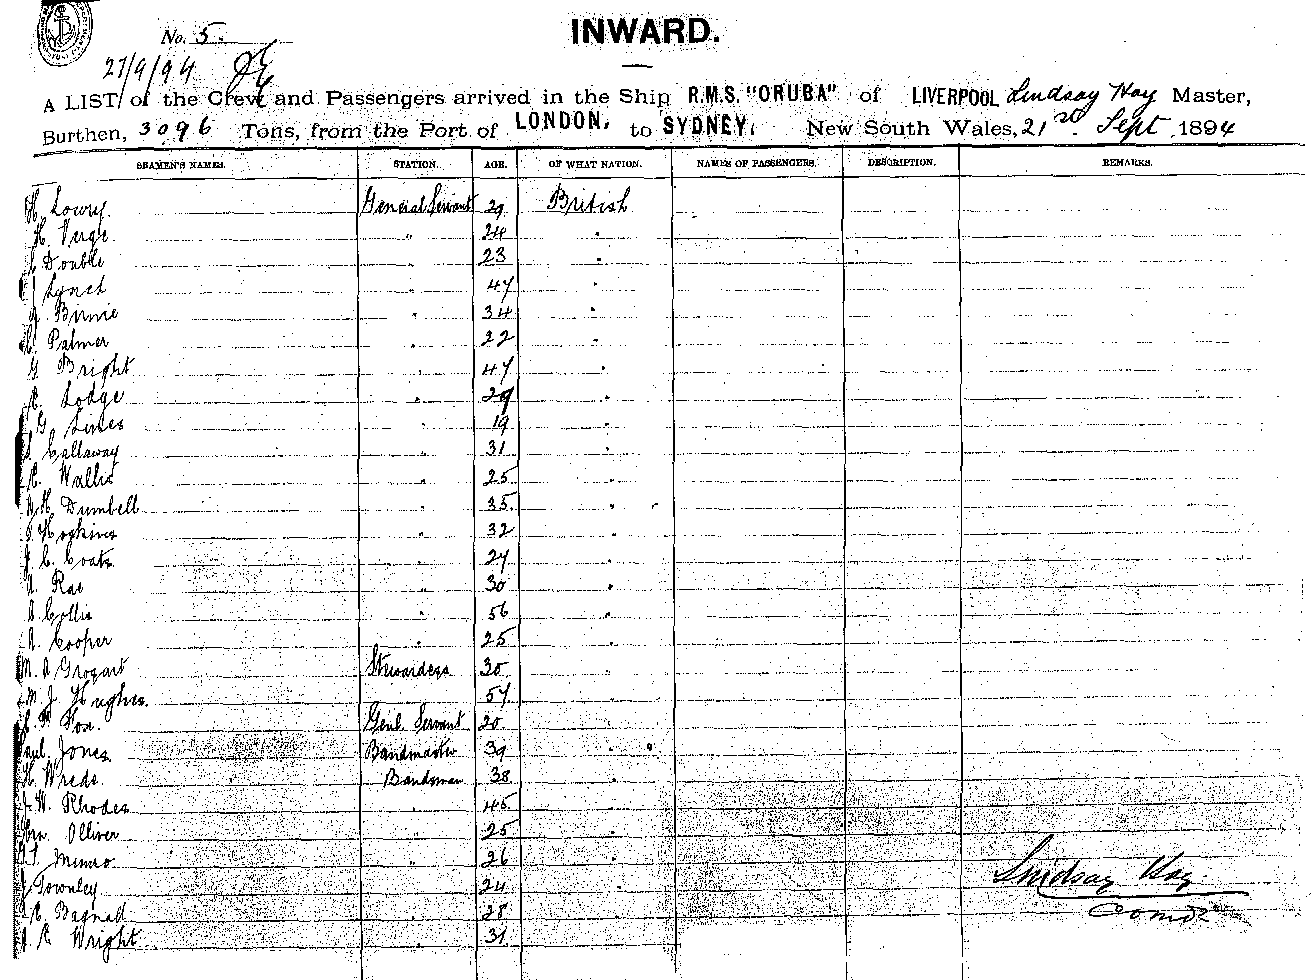 No. 5.
INWARD.
21/9/94
A LIST of the Crew and Passengers arrived in the Ship R.M.S. "ORUBA" of LIVERPOOL Lindsay Hay Master,
Burthen, 3096 Tons, from the Port of LONDON, to SYDNEY, New South Wales, 21st Sept 1894
SEAMEN'S NAMES. STATION. AGE. OF WHAT NATION. NAMES OF PASSENGERS. DESCRIPTION. REMARKS.
H. Lowry General Servant 29 British
H. Verge " 24 "
Double " 23 "
Lynch " 47 "
Birnie " 34 "
Palmer " 22 "
G Bright " 47 "
Lodge " 29 "
G. Lines " 19 "
Callaway " 31 "
C. Wallis " 25 "
W. H. Dumbell " 35 "
Hopkins " 32 "
J. C. Coats " 27 "
A. Rae " 30 "
Collis " 56 "
A. Cooper " 25 "
M. A Grogart Stewardess 30 "
M. J. Hughes " 57 "
Fox. Genl. Servant 20 "
Paul Jones Bandmaster 39 "
H. Wrede. Bandsman 38 "
J. W. Rhodes " 45 "
Olliver " 25 "
Munro " 26 "
J Townley " 24 "
Bagnad " 28 "
Wright " 31 "
Lindsay Hay